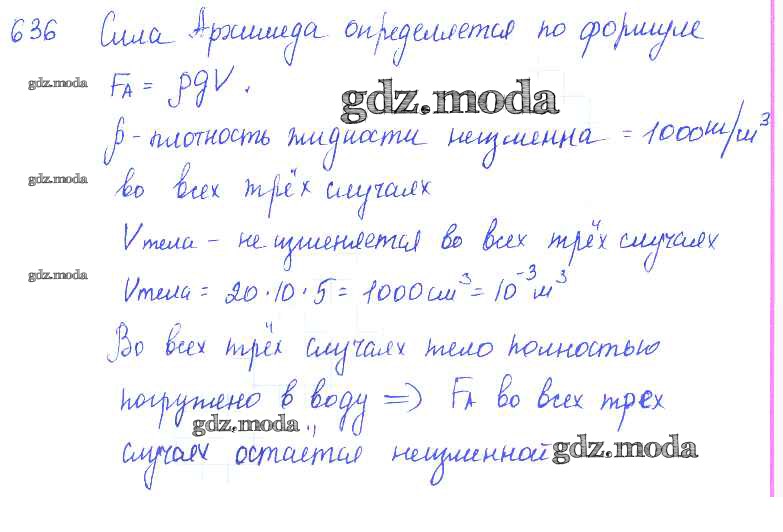 636 Сила Архимеда определяется по формуле
gdz.moda
FA = ρgV.
gdz.moda
ρ - плотность жидкости неизменна = 1000 кг/м³
gdz.moda
во всех трёх случаях
Vтела - не изменяется во всех трёх случаях
gdz.moda
Vтела = 20·10·5 = 1000 см³ = 10⁻³ м³
Во всех трёх случаях тело полностью
погружено в воду => FA во всех трех
gdz.moda
случаях остаётся неизменной
gdz.moda